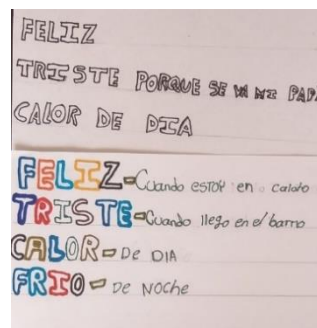 FELIZ
TRISTE PORQUE SE VA MI PAPA
CALOR DE DIA
FELIZ-Cuando ESTOY en calato
TRISTE-Cuando llego en el barro
CALOR-DE DIA
FRIO-DE NOCHE